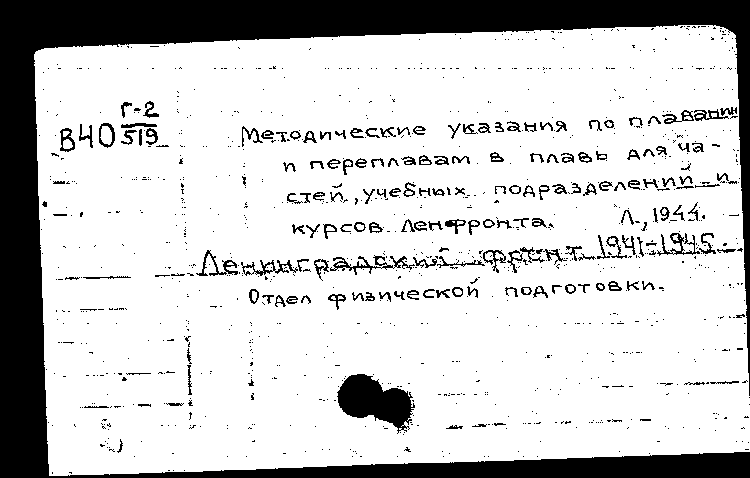 В40 Г-2/519
Методические указания по плавании
и переплавам в плавь для ча-
стей, учебных подразделений и
курсов Ленфронта. Л., 1944.
Ленинградский фронт 1941-1945.
Отдел физической подготовки.